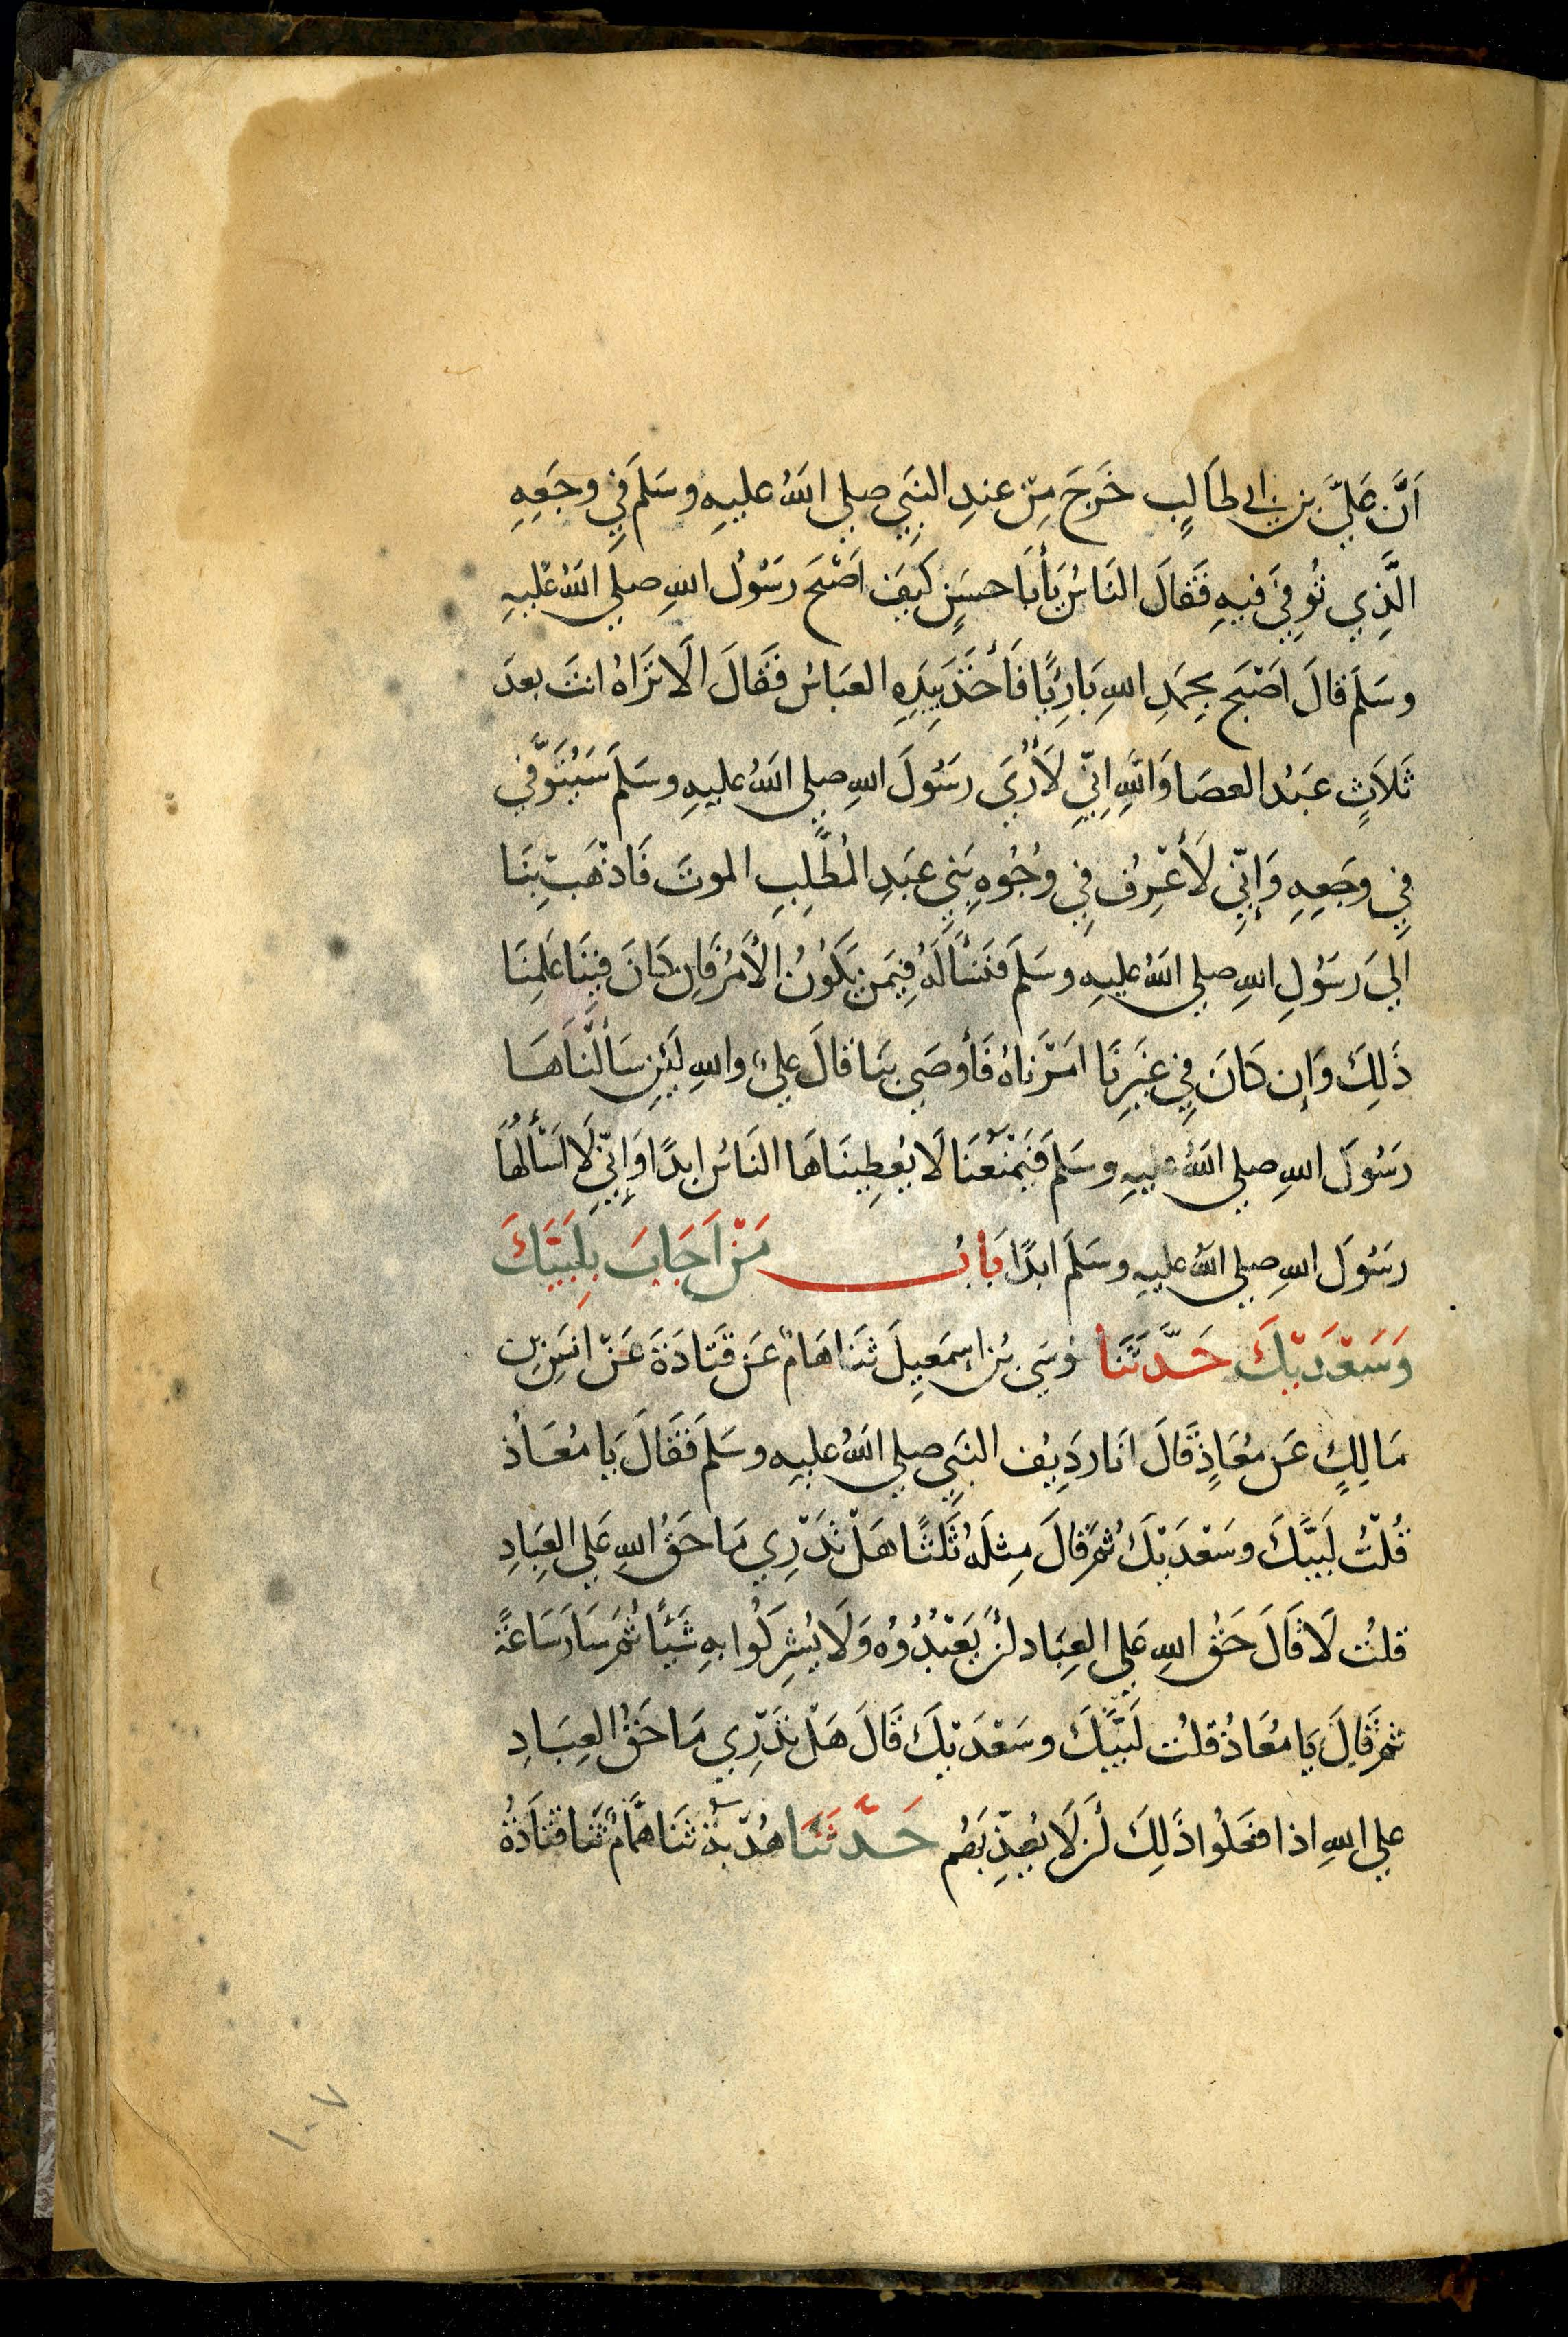 اَنَّ عَليَّ بن ابي طَالِبٍ خَرَجَ مِنْ عندِ النَبِي صلي اللهُ عليهِ وسَلمَ فِي وجَعِهِ
الَّذِي تُوفِيَ فيهِ فَقَالَ النَاسُ يَأبَا حسَنٍ كَيفَ اَصْبَحَ رَسُولُ اللهِ صلي اللهُ عليهِ
وسَلمَ قالَ اَصْبَح بِحمَدِ اللهِ بَارِئًا فَأَخَذَ بِيَدِهِ العَبَاسُ فَقَالَ اَلَا تَرَاهُ انتَ بعدَ
ثَلَاثٍ عَبدُ العصَا وَاللهِ اِنِّي لَأُرَي رَسُولَ اللهِ صلي اللهُ عليهِ وسَلمَ سَيُتَوَّفي
فِي وجَعِهِ وَإنِّي لَأَعْرِفُ فِي وجُوهِ بَنِي عَبَدِ المُطَّلِبِ الموتَ فَاذهَبْ بِنَا
اِلَي رَسُولِ اللهِ صلي اللهُ عليهِ وسَلمَ فَنَسْألَهُ فِيمَن يَكُونُ الأمرُ فَإن كَانَ فِينَا عَلِمنَا
ذَلِكَ وَإن كَانَ فِي غَيرِنَا امَرْنَاهُ فَأوصَي بنَا قالَ عليٌ واللهِ لَئِن سَألنَاهَا
رَسُولَ اللهِ صلي اللهُ عليهِ وسَلمَ فَيَمْنَعُنَا لَا يُعطِينَاهَا النَاسُ ابدًا وَإنِّي لَا اَسْألُهَا
رسَولَ اللهِ صلي اللهُ عليهِ وسَلمَ ابدًا بَابُ مَنْ اَجَابَ بِلَبَّيكَ
وَسَعْدَيْكَ حَدَّثَنَا مُوسَي بنُ اِسمَعِيلَ ثَنَا هَمامٌ عَن قَتَادَةَ عَنْ انَسِ بن
مَالِكٍ عَن مُعَاذٍ قَالَ انَا رَدِيفُ النَبِي صلي اللهُ عليهِ وسَلمَ فَقَالَ يَا مُعَاذُ
قُلتُ لَبَّيكَ وسَعْدَيْكَ ثُم قَالَ مِثلَهُ ثَلثًا هَلْ تَدْرِي مَا حَقُ اللهِ عَلي العِبَادِ
قلتُ لَا قَالَ حَقُ اللهِ عَلي العِبَاد اَن يَعَبُدُوُه وَلَا يُشرِكُوا بهِ شَيئًا ثُم سَارَ سَاعَةً
ثُم قَالَ يَا مُعَاذُ قلتُ لَبَّيكَ وسَعْدَيْكَ قَالَ هَلْ تَدْرِي مَا حَقُ العِبَادِ
علي اللهِ اذا فعَلُوا ذَلِكَ اَن لَا يُعَذِّبَهُم حَدَّثَنَا هُدْبَةُ ثَنَا هَمَّامٌ ثَنَا قتَادَةُ
١٠٧